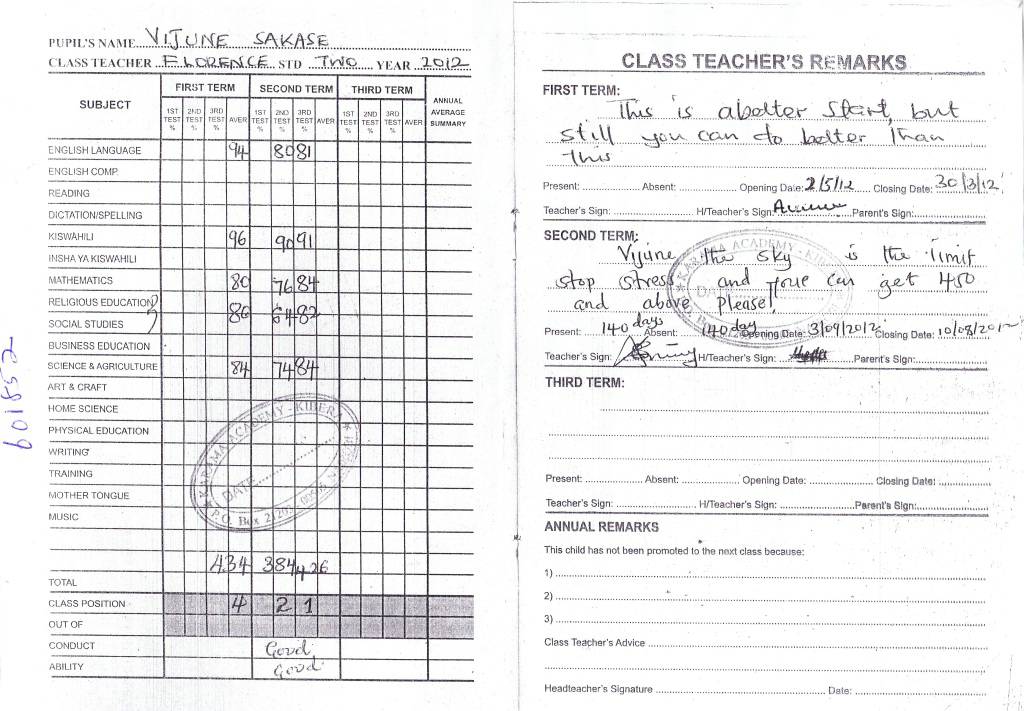 PUPIL'S NAME VIJUNE SAKASE
CLASS TEACHER FLORENCE STD TWO YEAR 2012
SUBJECT FIRST TERM SECOND TERM THIRD TERM ANNUAL AVERAGE SUMMARY
1ST TEST % 2ND TEST % 3RD TEST % AVER 1ST TEST % 2ND TEST % 3RD TEST % AVER 1ST TEST % 2ND TEST % 3RD TEST % AVER
ENGLISH LANGUAGE 94 80 81
ENGLISH COMP.
READING
DICTATION/SPELLING
KISWAHILI 96 90 91
INSHA YA KISWAHILI
MATHEMATICS 80 76 84
RELIGIOUS EDUCATION
SOCIAL STUDIES 80 64 82
BUSINESS EDUCATION
SCIENCE & AGRICULTURE 84 74 84
ART & CRAFT
HOME SCIENCE
PHYSICAL EDUCATION
WRITING
TRAINING
MOTHER TONGUE
MUSIC
434 384 426
TOTAL
CLASS POSITION 4 2 1
OUT OF
CONDUCT Good
ABILITY Good
KARAMA ACADEMY - KIBERA
DATE
P.O. Box
601852
CLASS TEACHER'S REMARKS
FIRST TERM:
This is abetter start, but
still you can do better than
this
Present: Absent: Opening Date: 2/5/12 Closing Date: 30/3/12
Teacher's Sign: H/Teacher's Sign: Parent's Sign:
SECOND TERM:
Vijune the sky is the limit
stop stress and you can get 450
and above please!
KARAMA ACADEMY
Present: 140 days Absent: 140 day Opening Date: 3/09/2012 Closing Date: 10/08/2012
Teacher's Sign: H/Teacher's Sign: Parent's Sign:
THIRD TERM:
Present: Absent: Opening Date: Closing Date:
Teacher's Sign: H/Teacher's Sign: Parent's Sign:
ANNUAL REMARKS
This child has not been promoted to the next class because:
1)
2)
3)
Class Teacher's Advice
Headteacher's Signature Date: